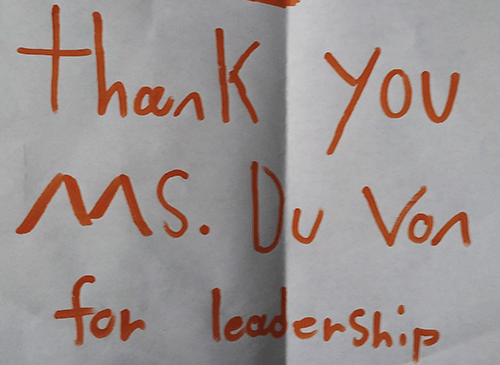 Thank you
Ms. Du Von
for leadership